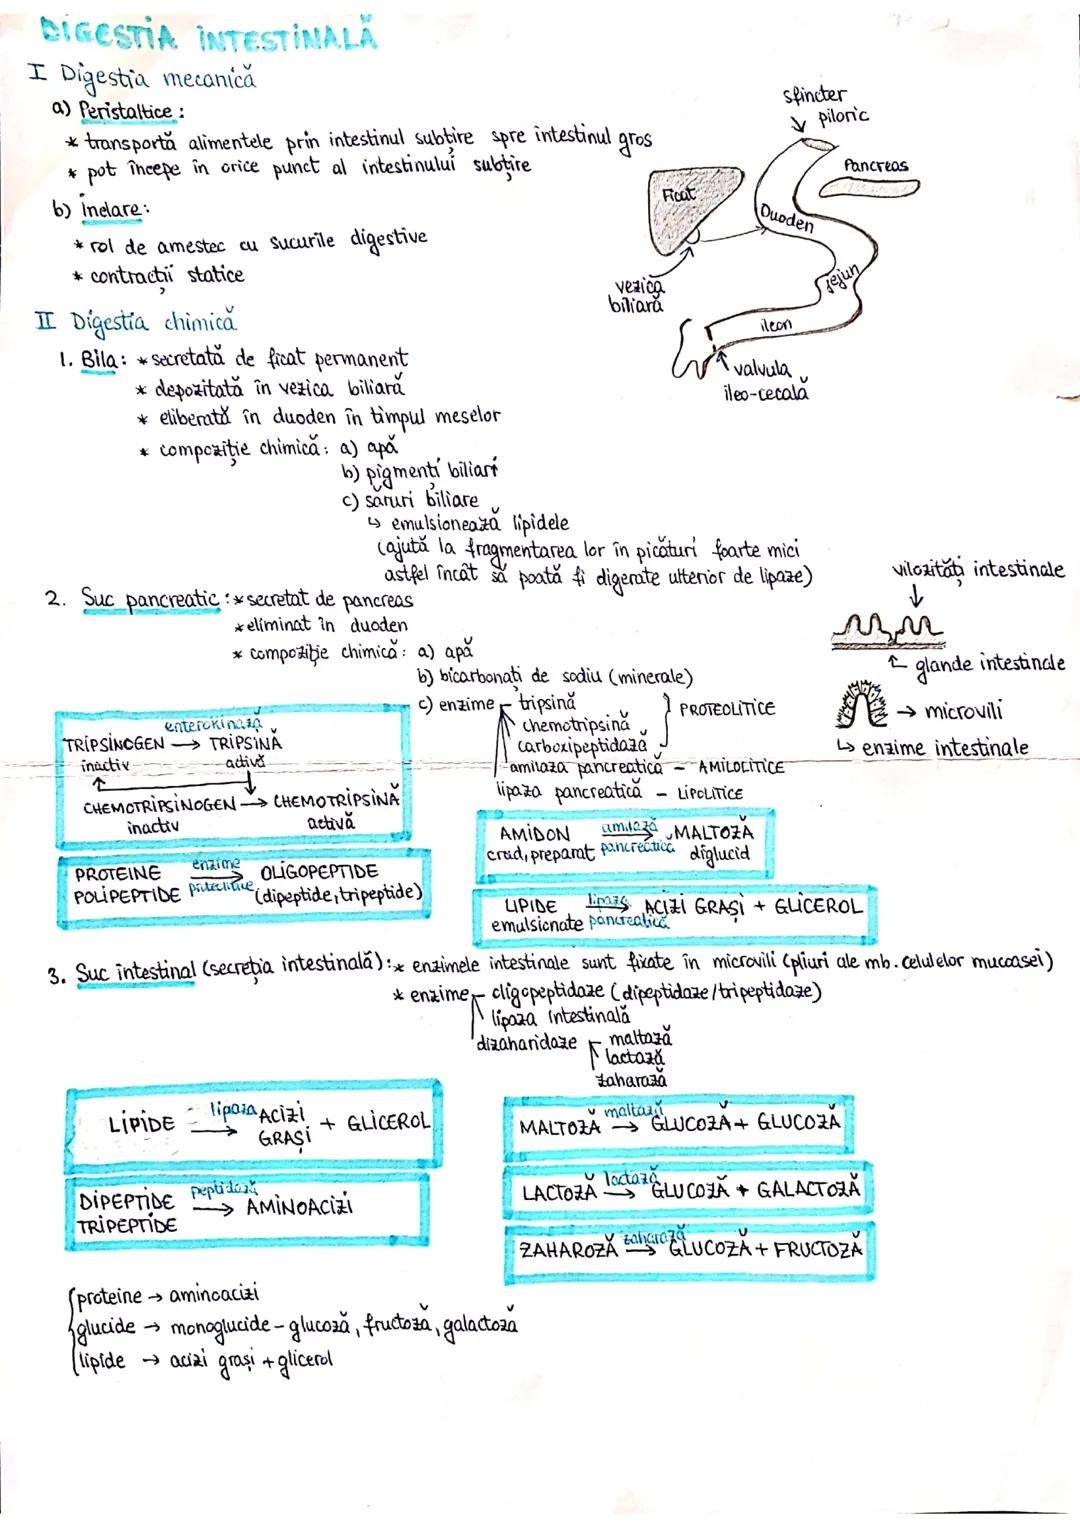 DIGESTIA INTESTINALĂ
I Digestia mecanică
a) Peristaltice:
* transportă alimentele prin intestinul subțire spre intestinul gros
* pot începe în orice punct al intestinului subțire
b) Inelare:
* rol de amestec cu sucurile digestive
* contracții statice
sfincter
piloric
Pancreas
Ficat
Duoden
jejun
vezica
biliară
ileon
valvula
ileo-cecală
II Digestia chimică
1. Bila: * secretată de ficat permanent
* depozitată în vezica biliară
* eliberată în duoden în timpul meselor
* compoziție chimică: a) apă
b) pigmenți biliari
c) săruri biliare
↳ emulsionează lipidele
(ajută la fragmentarea lor în picături foarte mici
astfel încât să poată fi digerate ulterior de lipaze)
vilozități intestinale
glande intestinale
→ microvili
↳ enzime intestinale
2. Suc pancreatic: * secretat de pancreas
* eliminat în duoden
* compoziție chimică: a) apă
b) bicarbonați de sodiu (minerale)
c) enzime tripsină
chemotripsină
carboxipeptidază
PROTEOLITICE
amilaza pancreatică - AMILOLITICE
lipaza pancreatică - LIPOLITICE
enterokinază
TRIPSINOGEN → TRIPSINĂ
inactiv activă
CHEMOTRIPSINOGEN → CHEMOTRIPSINĂ
inactiv activă
PROTEINE enzime OLIGOPEPTIDE
POLIPEPTIDE proteolitice (dipeptide, tripeptide)
AMIDON amilază → MALTOZĂ
crud, preparat pancreatică diglucid
LIPIDE lipază → ACIZI GRAȘI + GLICEROL
emulsionate pancreatică
3. Suc intestinal (secreția intestinală): * enzimele intestinale sunt fixate în microvili (pliuri ale mb. celulelor mucoasei)
* enzime oligopeptidaze (dipeptidaze/tripeptidaze)
lipaza intestinală
dizaharidaze maltază
lactază
zaharază
LIPIDE lipaza → ACIZI GRAȘI + GLICEROL
DIPEPTIDE peptidază → AMINOACIZI
TRIPEPTIDE
MALTOZĂ maltază → GLUCOZĂ + GLUCOZĂ
LACTOZĂ lactază → GLUCOZĂ + GALACTOZĂ
ZAHAROZĂ zaharază → GLUCOZĂ + FRUCTOZĂ
proteine → aminoacizi
glucide → monoglucide - glucoză, fructoză, galactoză
lipide → acizi grași + glicerol